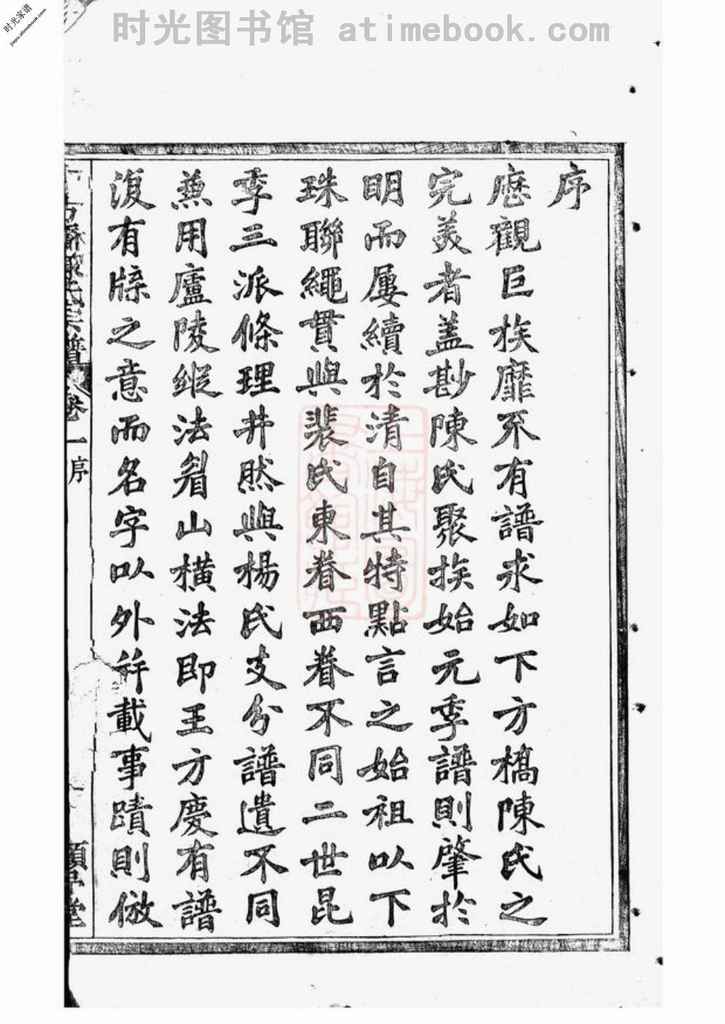 时光图书馆 atimebook.com
时光家谱
序
歷觀巨族靡不有譜求如下方橋陳氏之
完美者蓋尠陳氏聚族始元季譜則肇於
明而屢續於清自其特點言之始祖以下
珠聯繩貫與裴氏東眷西眷不同二世昆
季三派條理井然與楊氏支分譜遺不同
兼用廬陵縱法眉山橫法即王方慶有譜
復有牒之意而名字以外并載事蹟則倣
下方橋陳氏宗譜 卷一序